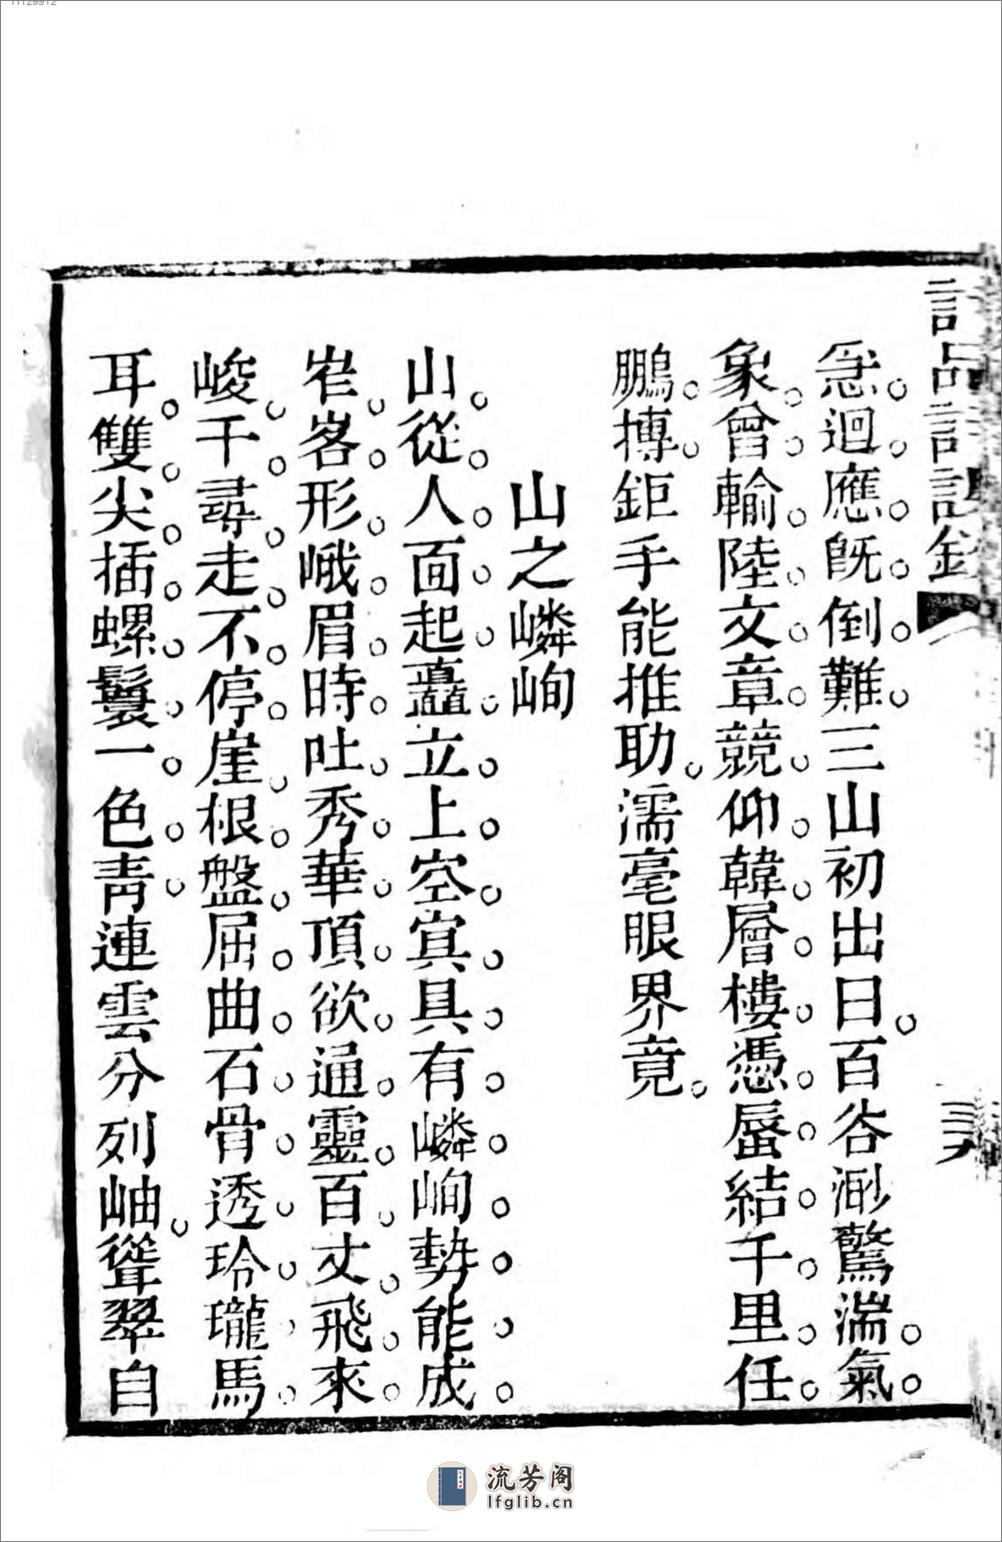 11129912
詩品詩課鈔
三
急迴應旣倒難三山初出日百谷㴐驚湍氣
象曾輸陸文章競仰韓層樓憑蜃結千里任
鵬摶鉅手能推助濡毫眼界竟
山之嶙峋
山從人面起矗立上空寘具有嶙峋勢能成
岞峉形峨眉時吐秀華頂欲通靈百丈飛來
峻千尋走不停崖根盤屈曲石骨透玲瓏馬
耳雙尖插螺鬟一色靑連雲分列岫聳翠自
流芳阁
lfglib.cn